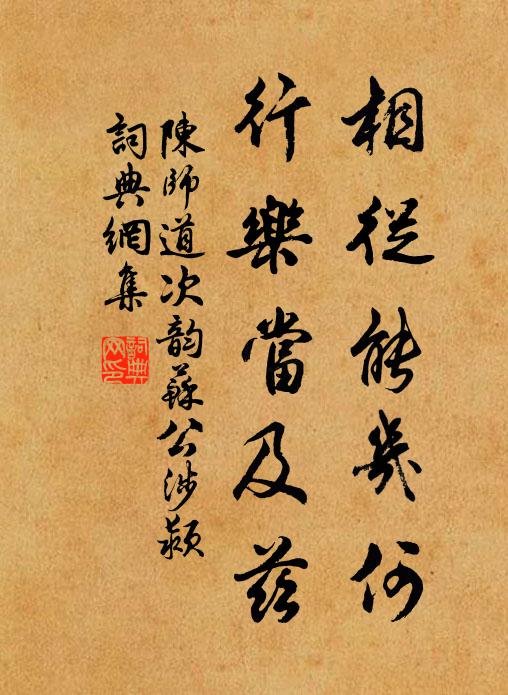 相從能幾何
行樂當及茲
陳師道次韵蘇公涉潁
詞典網集
詞典
网印